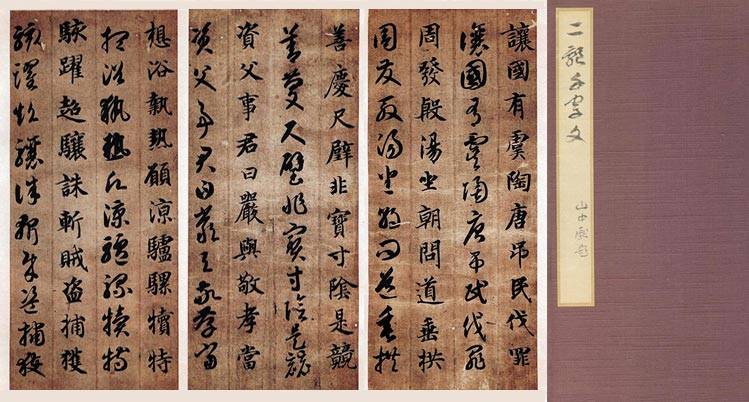 二體千字文
讓國有虞陶唐吊民伐罪
讓國有虞陶唐吊民伐罪
周發殷湯坐朝問道垂拱
周發殷湯坐朝問道垂拱
善慶尺璧非寶寸陰是競
善慶尺璧非寶寸陰是競
資父事君曰嚴與敬孝當
資父事君曰嚴與敬孝當
想浴執熱願涼驢騾犢特
想浴執熱願涼驢騾犢特
駭躍超驤誅斬賊盜捕獲
駭躍超驤誅斬賊盜捕獲